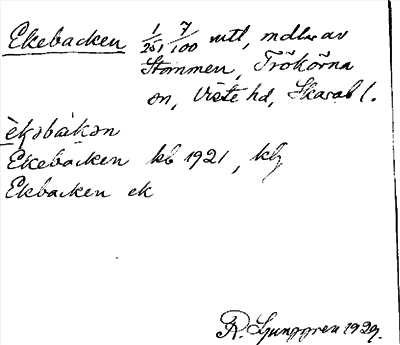 Ekebacken 1/261 7/100 mtl, mdlar av
Stommen, Trökörna
sn, Viste hd, Skarab l.
èkəbàkən
Ekebacken kb 1921, klj
Ekbacken ek
R. Ljunggren 1929.